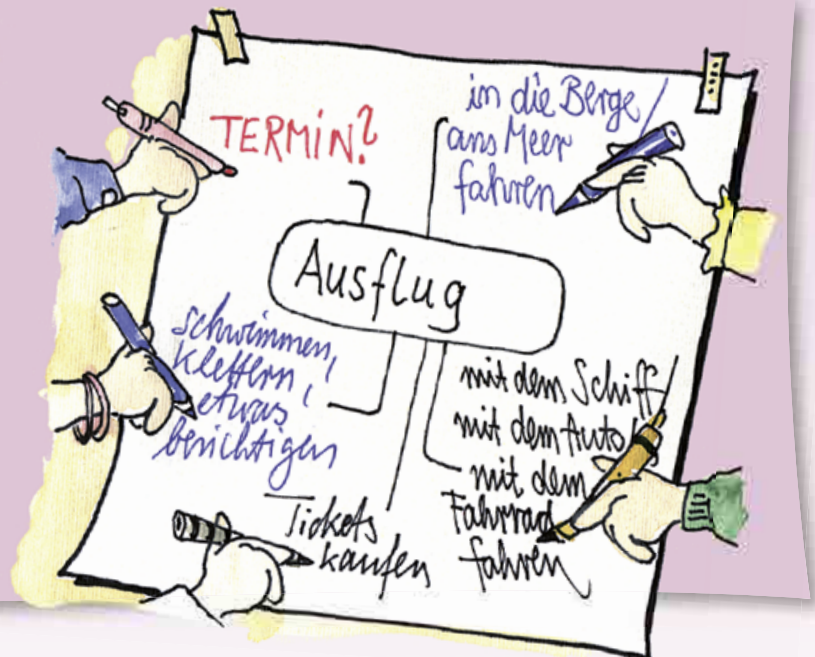 TERMIN?
in die Berge/
ans Meer
fahren
Ausflug
schwimmen,
klettern,
etwas
besichtigen
mit dem Schiff/
mit dem Auto/
mit dem
Fahrrad
fahren
Tickets
kaufen